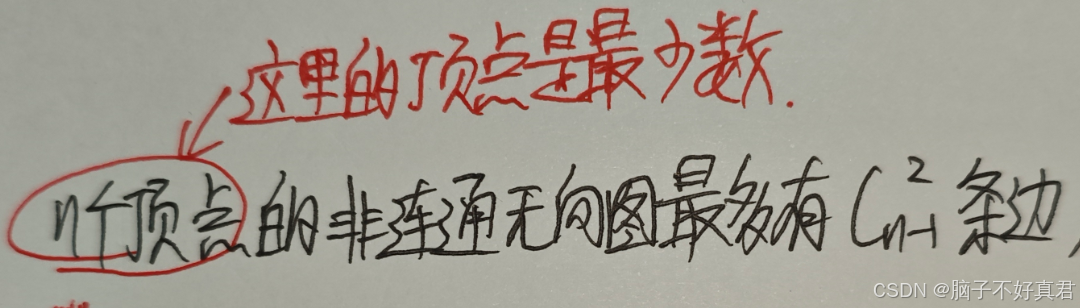 这里的顶点是最少数.
n个顶点的非连通无向图最多有 C²ₙ₋₁ 条边,
CSDN @脑子不好真君